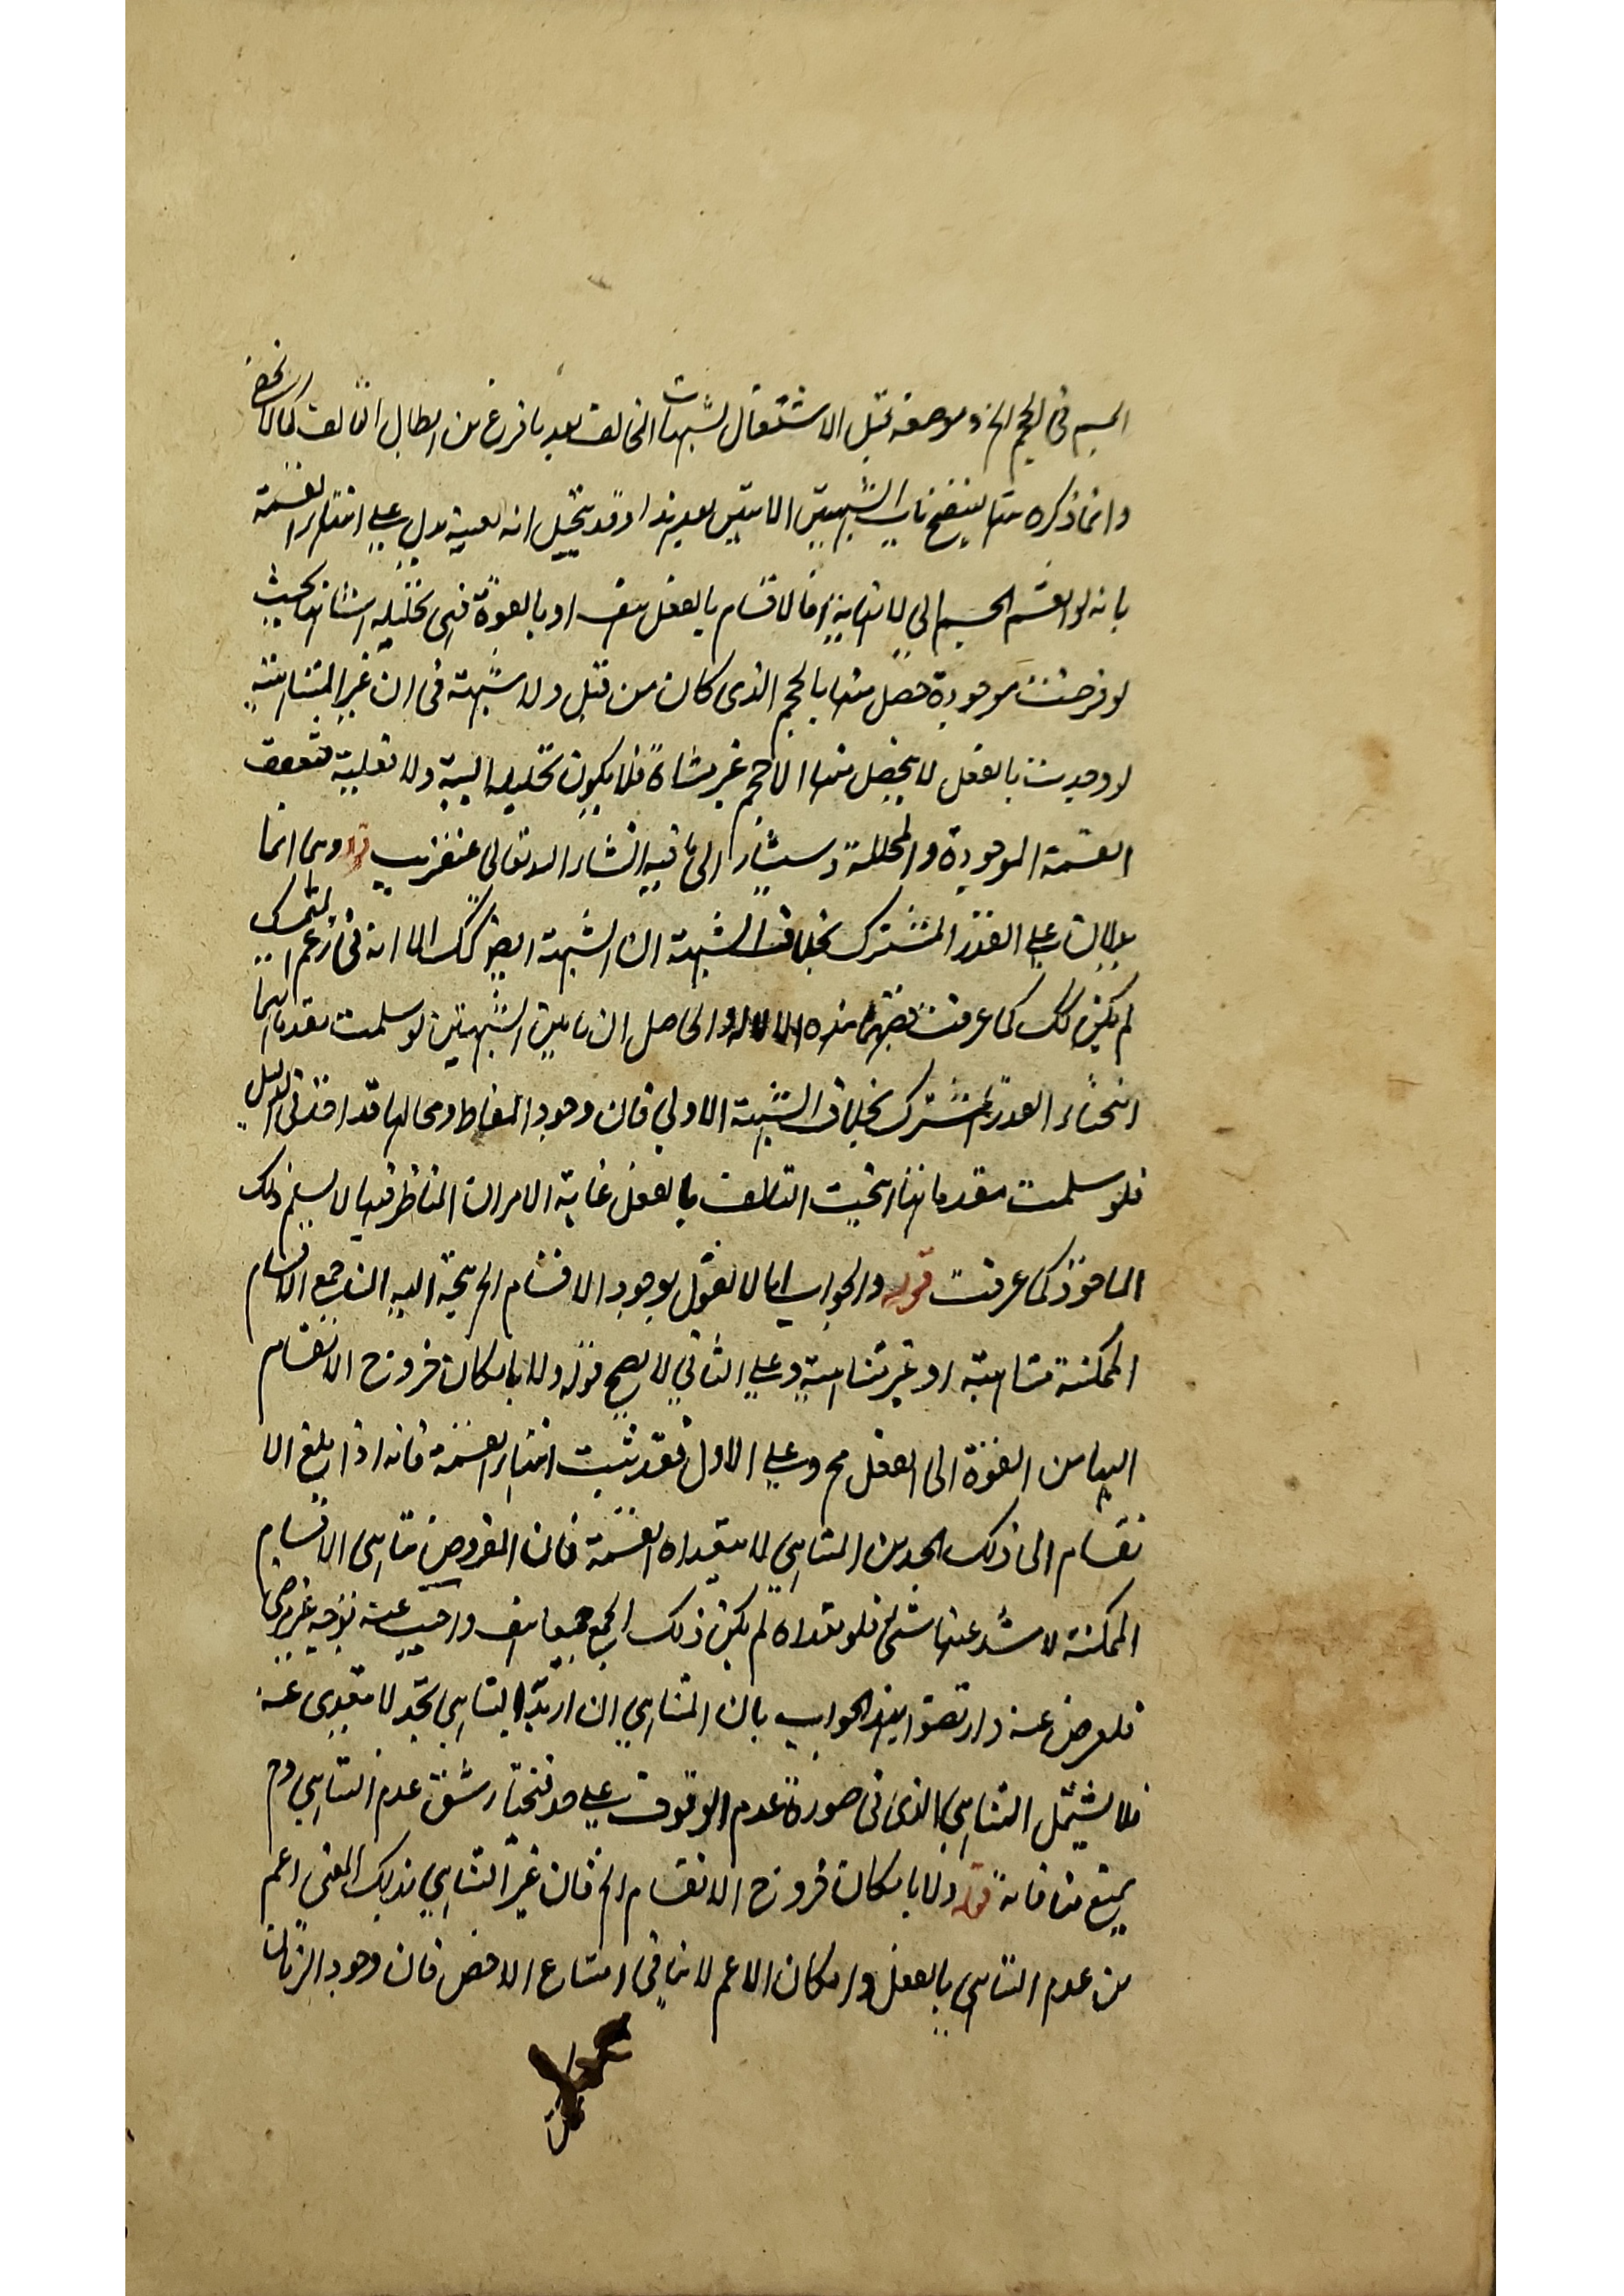 الجسم في الحجم الخ وموضعه قبل الاشتغال بشبهات المخالف بعد ما فرغ من ابطال التألف كما لا يخفى
وانما ذكره هنا ليتضح الشبهتين الاتيتين بعد هذا وقد يتخيل انه بعينه يدل على انتهاء القسمة
بانه لو انقسم الجسم الى لا نهاية فالاقسام بالفعل هف او بالقوة فهي تحليلية شانها بحيث
لو فرضت موجودة حصل منها بالحجم الذي كان من قبل ولا شبهة في ان غير المتناهية
لو وجدت بالفعل لا يحصل منها الا حجم غير متناه فلا يكون تحليلها اليه ولا تغليبه فتعقق
القسمة الموجودة والمحللة وسيشار الى ما فيه انشاء الله تعالى عنقريب قوله وهما انما
يدلان على القدر المشترك بخلاف الشبهة ان الشبهة ايضا كك الا انه في زعم المتمسك
لم يكن كك كما عرفت هذه والحاصل ان هاتين الشبهتين لو سلمت مقدماتهما
انتجتا القدر المشترك بخلاف الشبهة الاولى فان وجود النقاط ومحالها قد اخذ في الدليل
فلو سلمت مقدماتها انتجت التالف بالفعل غاية الامر ان المناظر فيها لا يسلم ذلك
الماخوذ كما عرفت قوله والجواب انا لا نقول بوجود الاقسام الخ يتجه اليه ان جميع الاقسام
الممكنة متناهية او غير متناهية وعلى الثاني لا يصح قوله ولا بامكان خروج الانقسام
اليها من القوة الى الفعل مح وعلى الاول فقد ثبت انتهاء القسمة فانه اذا بلغ الا
نقسام الى ذلك الحد من المتناهي لا يتعداه القسمة فان المفروض تناهي الاقسام
الممكنة لا يشذ عنها شئ فلو تعداه لم يكن ذلك الجميع جميعا هف واجيب عنه بوجوه غير مرضي
فلعرض عنه وارتضوا بهذا الجواب بان المتناهي ان اريد به المتناهي بحد لا يتعدى عنه
فلا يشتمل التناهي الذي في صورة عدم الوقوف على حد فنختار شق عدم التناهي وح
يمنع منافاة قوله ولا بامكان خروج الانقسام الخ فان غير التناهي بذلك المعنى اعم
من عدم التناهي بالفعل وامكان الاعم لا ينافي امتناع الاخص فان وجود الزمان